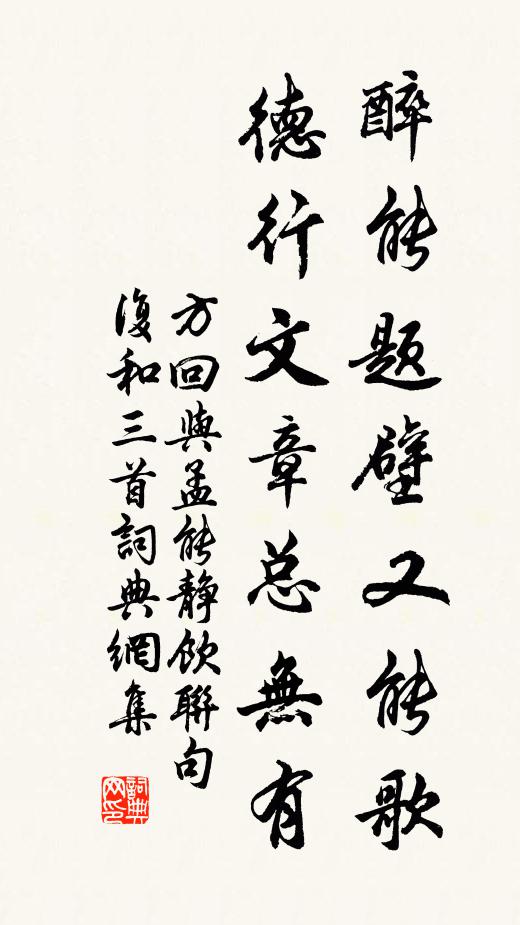 醉能題壁又能歌
德行文章总無有
方回與孟能静飲聯句
復和三首詞典網集
詞典网印